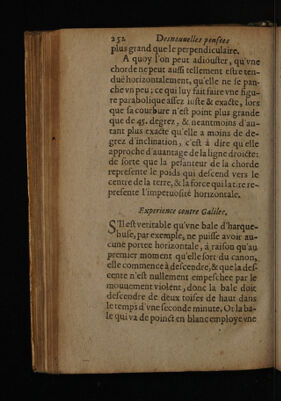 252 Des nouuelles pensées
plus grand que le perpendiculaire.
A quoy l'on peut adiouster, qu'vne
chorde ne peut aussi tellement estre ten-
duë horizontalement, qu'elle ne se pan-
che vn peu; ce qui luy fait faire vne figu-
re parabolique assez iuste & exacte, lors
que sa courbure n'est point plus grande
que de 45. degrez, & neantmoins d'au-
tant plus exacte qu'elle a moins de de-
grez d'inclination, c'est à dire qu'elle
approche d'auantage de la ligne droicte:
de sorte que la pesanteur de la chorde
represente le poids qui descend vers le
centre de la terre, & la force qui la tire re-
presente l'impetuosité horizontale.
Experience contre Galilee.
S'Il est veritable qu'vne bale d'harque-
buse, par exemple, ne puisse avoir au-
cune portee horizontale, à raison qu'au
premier moment qu'elle sort du canon,
elle commence à descendre, & que la des-
cente n'est nullement empeschee par le
mouuement violent, donc la bale doit
descendre de deux toises de haut dans
le temps d'vne seconde minute. Or la ba-
le qui va de poinct en blanc employe vne